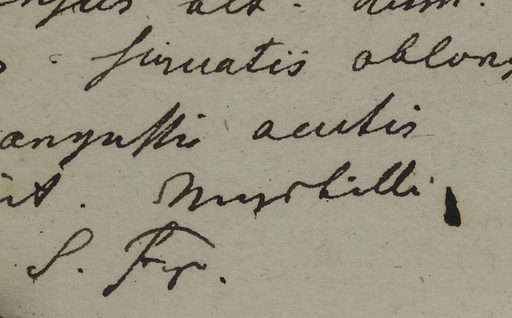 alt.
sinuatis oblong
angustis acutis
Myrtilli
S. Fr.